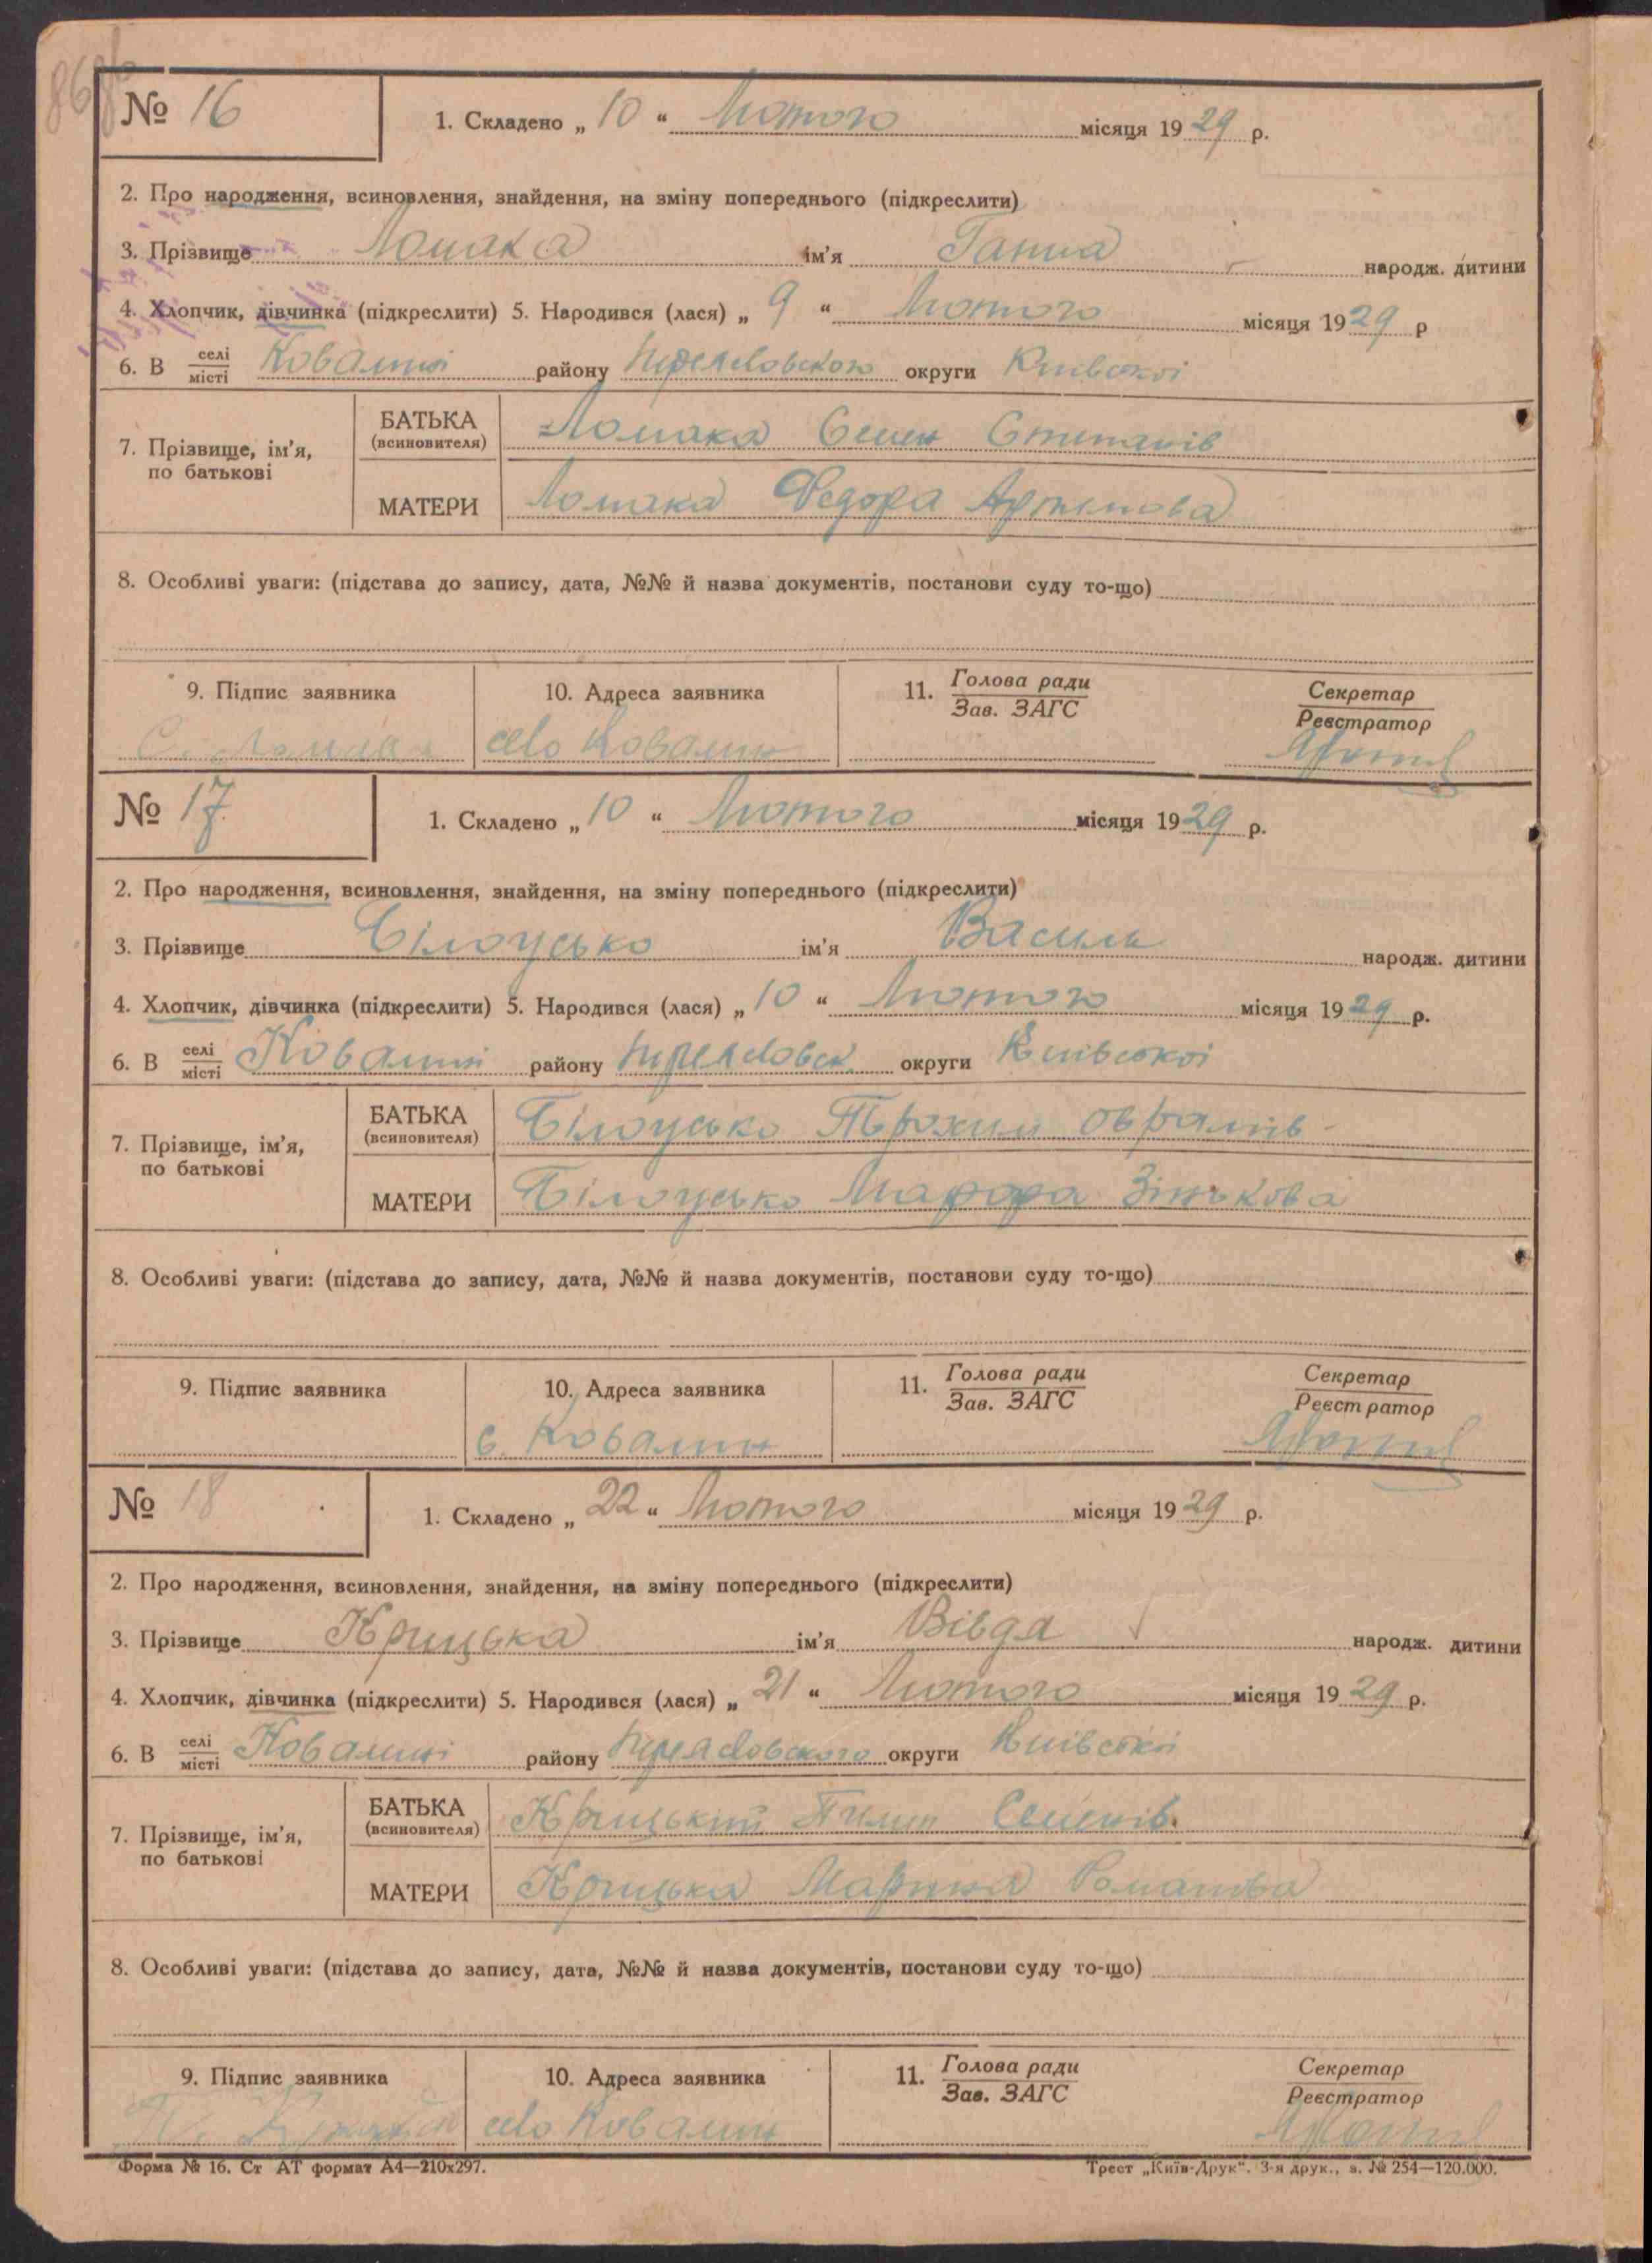 № 16
1. Складено „ 10 “ Лютого місяця 1929 р.
2. Про народження, всиновлення, знайдення, на зміну попереднього (підкреслити)
3. Прізвище Ломака ім'я Ганна народж. дитини
4. Хлопчик, дівчинка (підкреслити) 5. Народився (лася) „ 9 “ Лютого місяця 1929 р
6. В селі місті Ковалині району Переяславського округи Київської
7. Прізвище, ім'я, по батькові
БАТЬКА (всиновителя) Ломака Семен Степанів
МАТЕРИ Ломака Федора Артемова
8. Особливі уваги: (підстава до запису, дата, №№ й назва документів, постанови суду то-що)
9. Підпис заявника 10. Адреса заявника 11. Голова ради Зав. ЗАГС Секретар Реєстратор
С. Ломака село Ковалин
№ 17
1. Складено „ 10 “ Лютого місяця 1929 р.
2. Про народження, всиновлення, знайдення, на зміну попереднього (підкреслити)
3. Прізвище Білоусько ім'я Василь народж. дитини
4. Хлопчик, дівчинка (підкреслити) 5. Народився (лася) „ 10 “ Лютого місяця 1929 р.
6. В селі місті Ковалині району Переясловськ. округи Київської
7. Прізвище, ім'я, по батькові
БАТЬКА (всиновителя) Білоусько Трохим Оврамів
МАТЕРИ Білоусько Марфа Зінькова
8. Особливі уваги: (підстава до запису, дата, №№ й назва документів, постанови суду то-що)
9. Підпис заявника 10. Адреса заявника 11. Голова ради Зав. ЗАГС Секретар Реєстратор
с. Ковалин
№ 18
1. Складено „ 22 “ Лютого місяця 1929 р.
2. Про народження, всиновлення, знайдення, на зміну попереднього (підкреслити)
3. Прізвище Крицька ім'я Вівдя народж. дитини
4. Хлопчик, дівчинка (підкреслити) 5. Народився (лася) „ 21 “ Лютого місяця 1929 р.
6. В селі місті Ковалині району Переясловського округи Київської
7. Прізвище, ім'я, по батькові
БАТЬКА (всиновителя) Крицький Пилип Семенів
МАТЕРИ Крицька Марина Романова
8. Особливі уваги: (підстава до запису, дата, №№ й назва документів, постанови суду то-що)
9. Підпис заявника 10. Адреса заявника 11. Голова ради Зав. ЗАГС Секретар Реєстратор
село Ковалин
Форма № 16. Ст АТ формат А4—210х297. Трест „Київ-Друк“. 3-я друк., з. № 254—120.000.